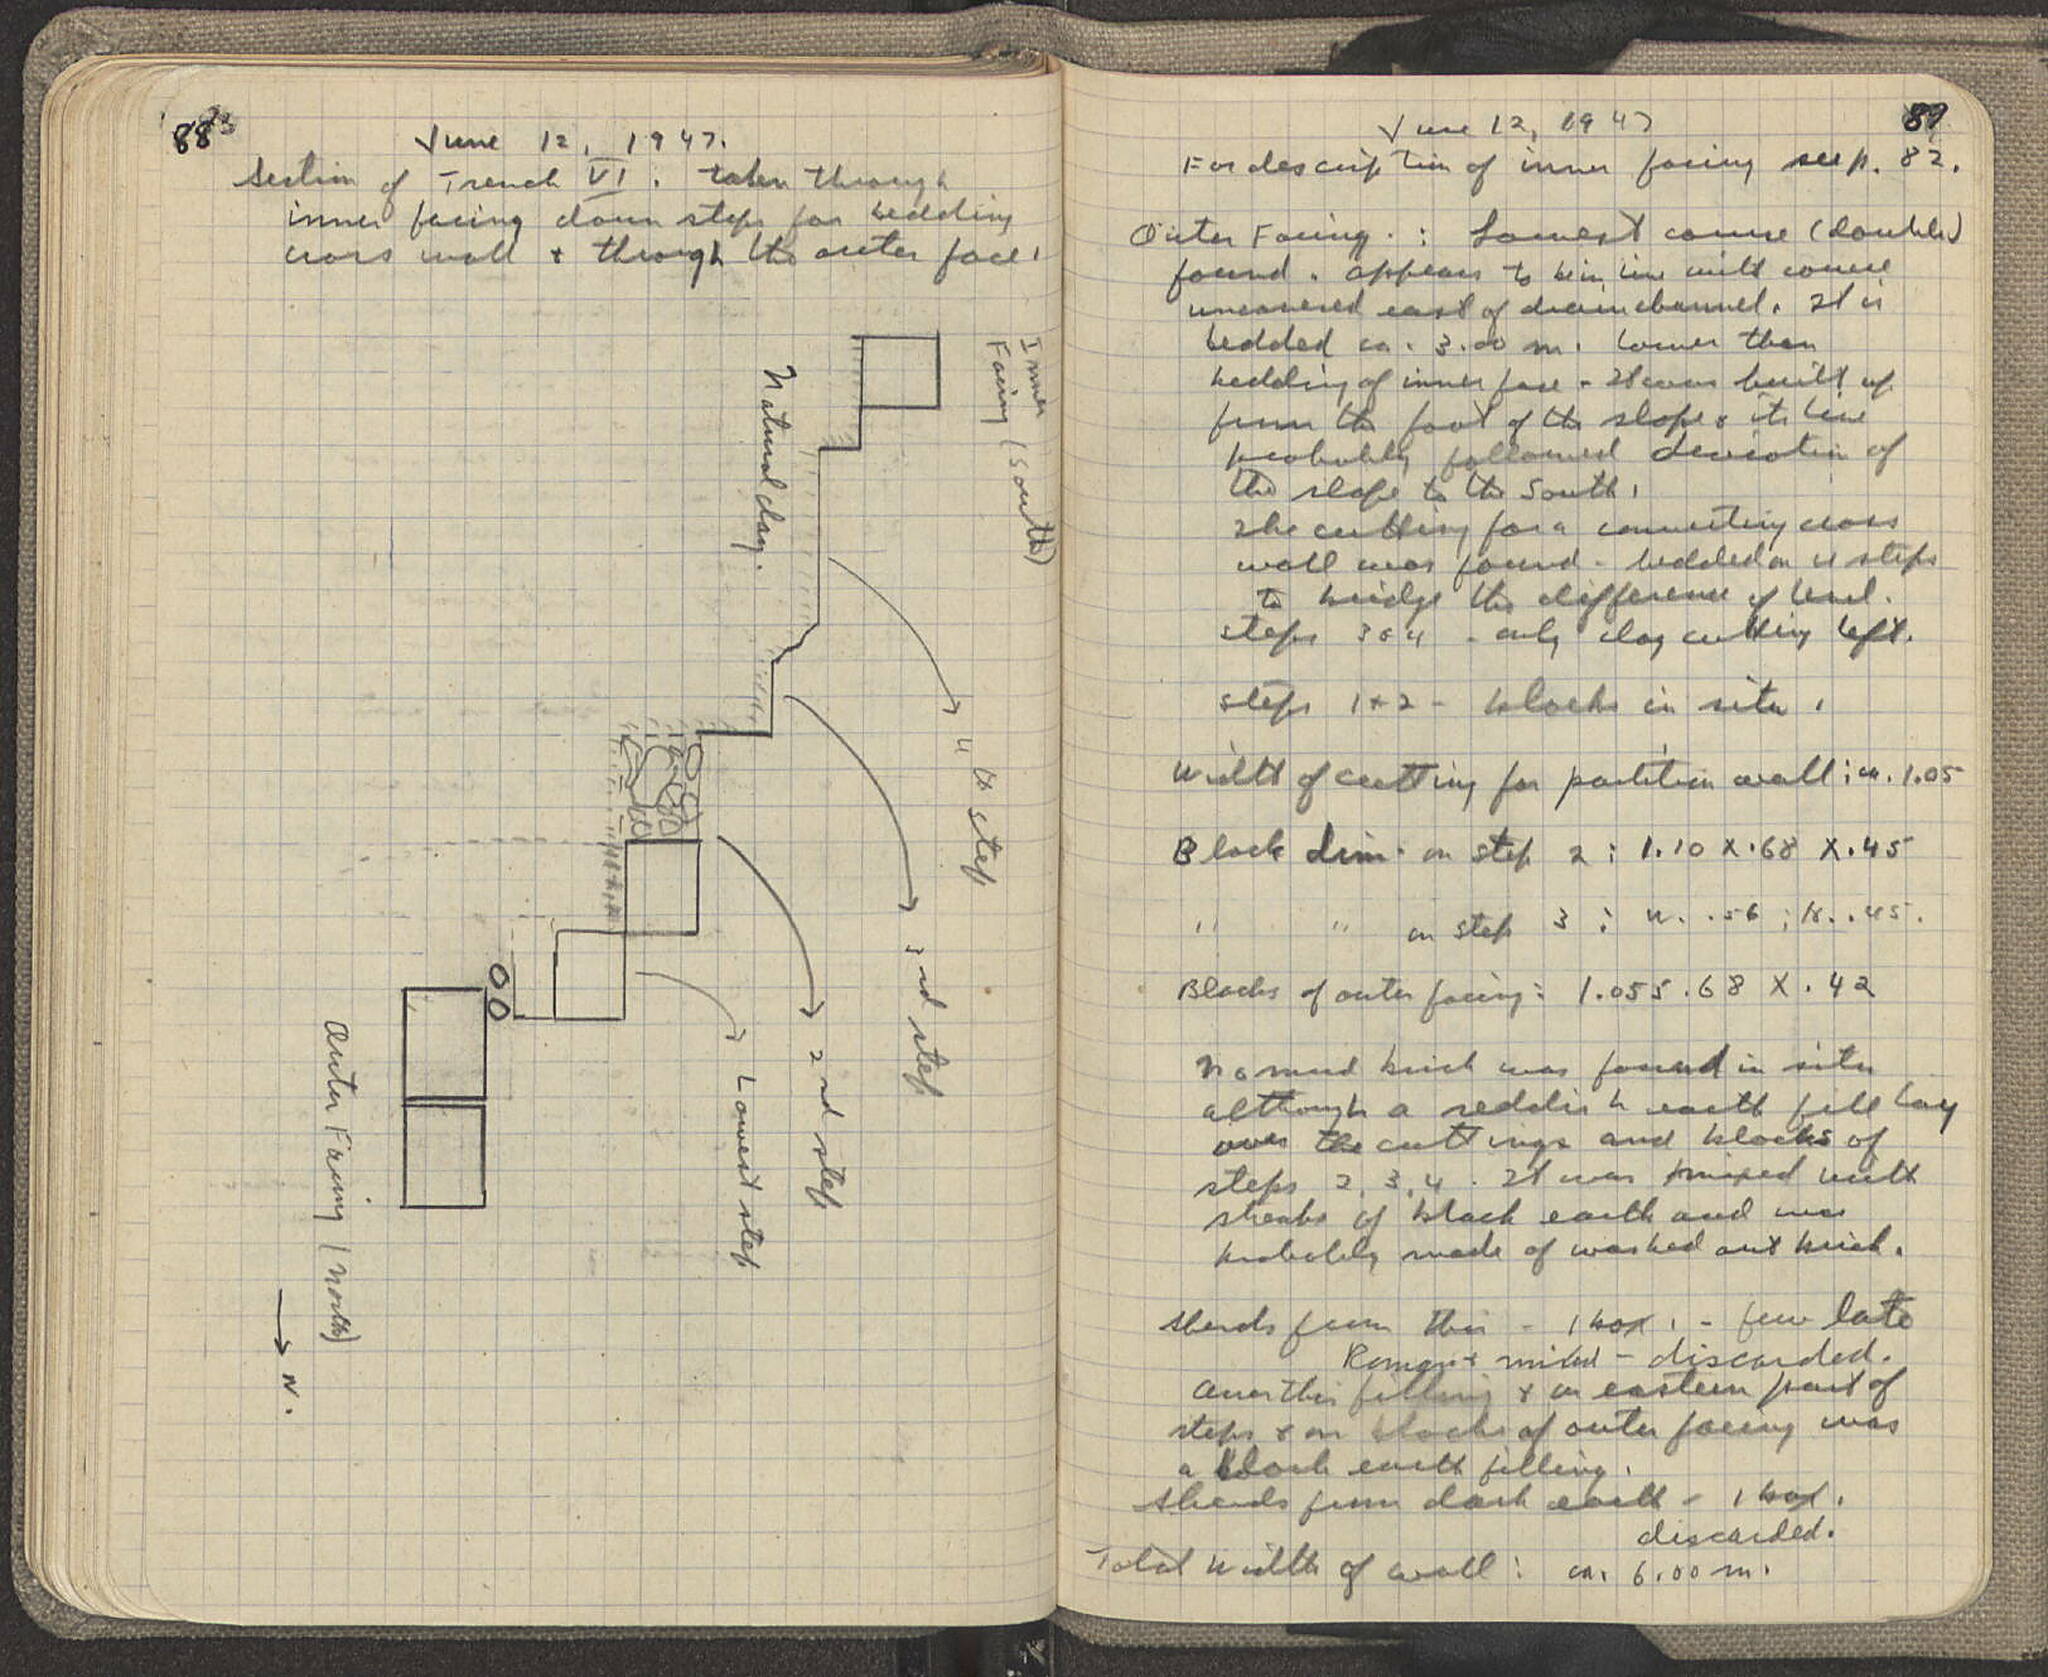 88
June 12, 1947.
Section of Trench VI. taken through
inner facing down steps for bedding
cross wall & through the outer face.
Inner
Facing (South)
Natural clay.
4th step
3rd step
2nd step
Lowest step
Outer Facing (North)
N.
89
June 12, 1947
For description of inner facing see p. 82.
Outer Facing : Lowest course (double)
found. appears to be in line with course
uncovered east of drain channel. It is
bedded ca. 3.00 m. lower than
bedding of inner face - It was built up
from the foot of the slope & its line
probably followed deviation of
the slope to the South.
The cutting for a connecting cross
wall was found - bedded on 4 steps
to bridge the difference of level.
Steps 3 & 4 - only clay cutting left.
Steps 1 & 2 - blocks in situ.
Width of cutting for partition wall : ca. 1.05
Block dim. on step 2 : 1.10 X .68 X .45
" " on step 3 : W. .56 ; H. .45.
Blocks of outer facing : 1.055 .68 X .42
No mud brick was found in situ
although a reddish earth fill lay
over the cuttings and blocks of
steps 2, 3, 4. It was mixed with
streaks of black earth and was
probably made of washed out brick.
Sherds from this - 1 box. - few late
Roman & mixed - discarded.
Over this filling & on eastern part of
steps & on blocks of outer facing was
a black earth filling.
Sherds from dark earth - 1 box.
discarded.
Total width of wall : ca. 6.00 m.